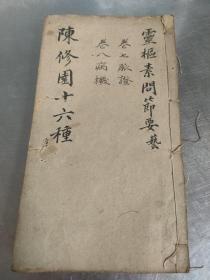 靈樞素問節要藝
卷七脈證
卷八病機
陳修園十六種